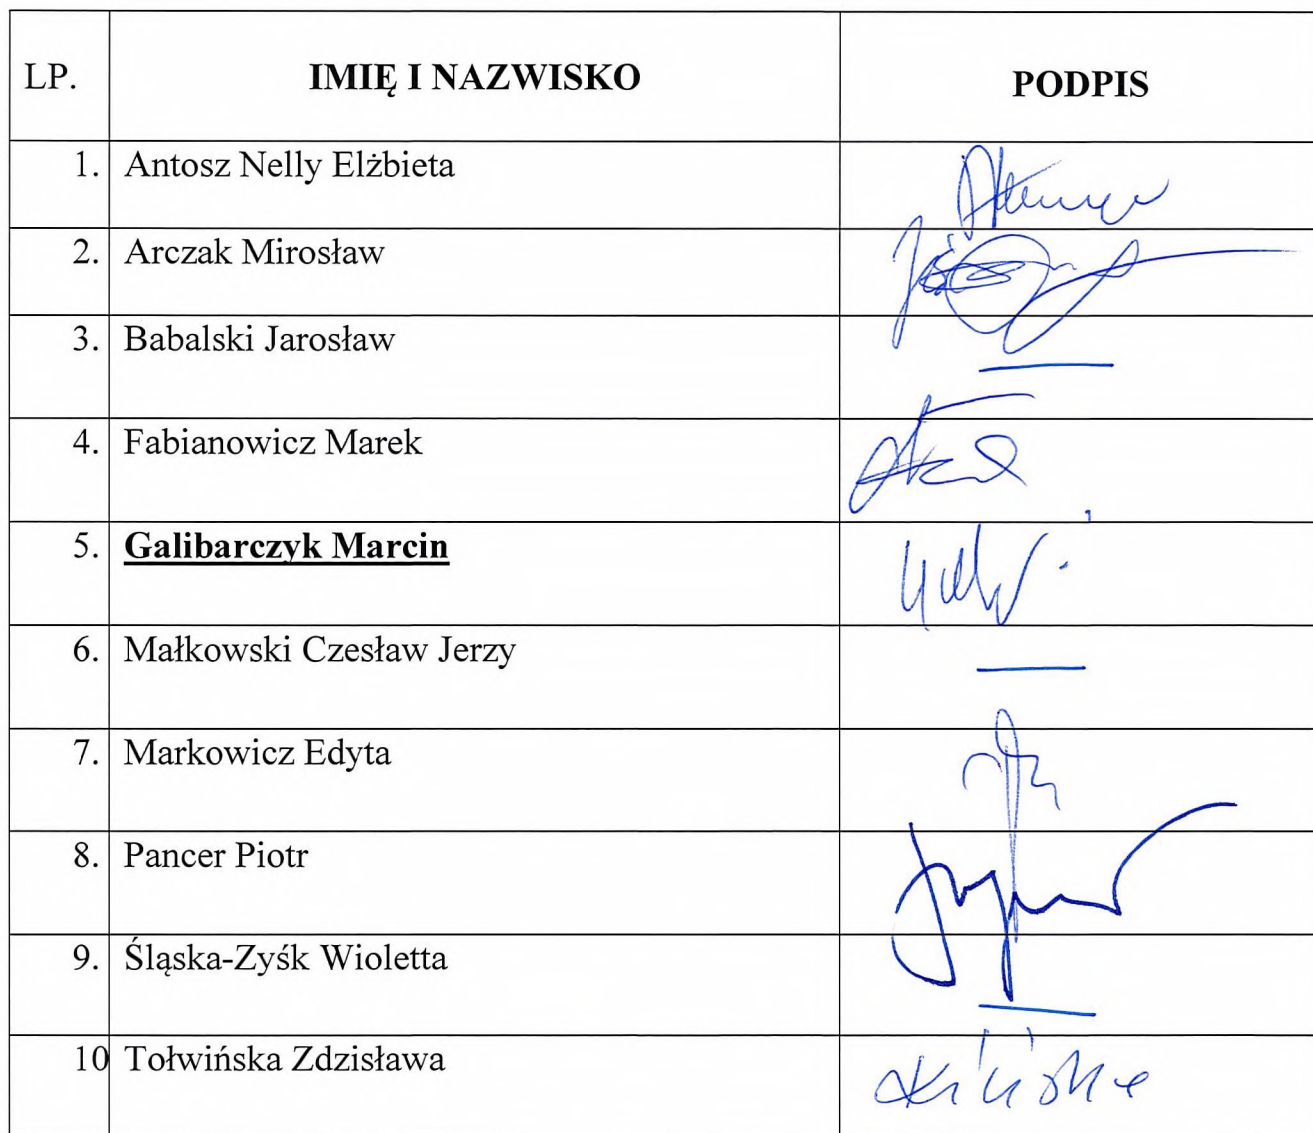 LP. IMIĘ I NAZWISKO PODPIS
1. Antosz Nelly Elżbieta
2. Arczak Mirosław
3. Babalski Jarosław
4. Fabianowicz Marek
5. Galibarczyk Marcin
6. Małkowski Czesław Jerzy
7. Markowicz Edyta
8. Pancer Piotr
9. Śląska-Zyśk Wioletta
10 Tołwińska Zdzisława